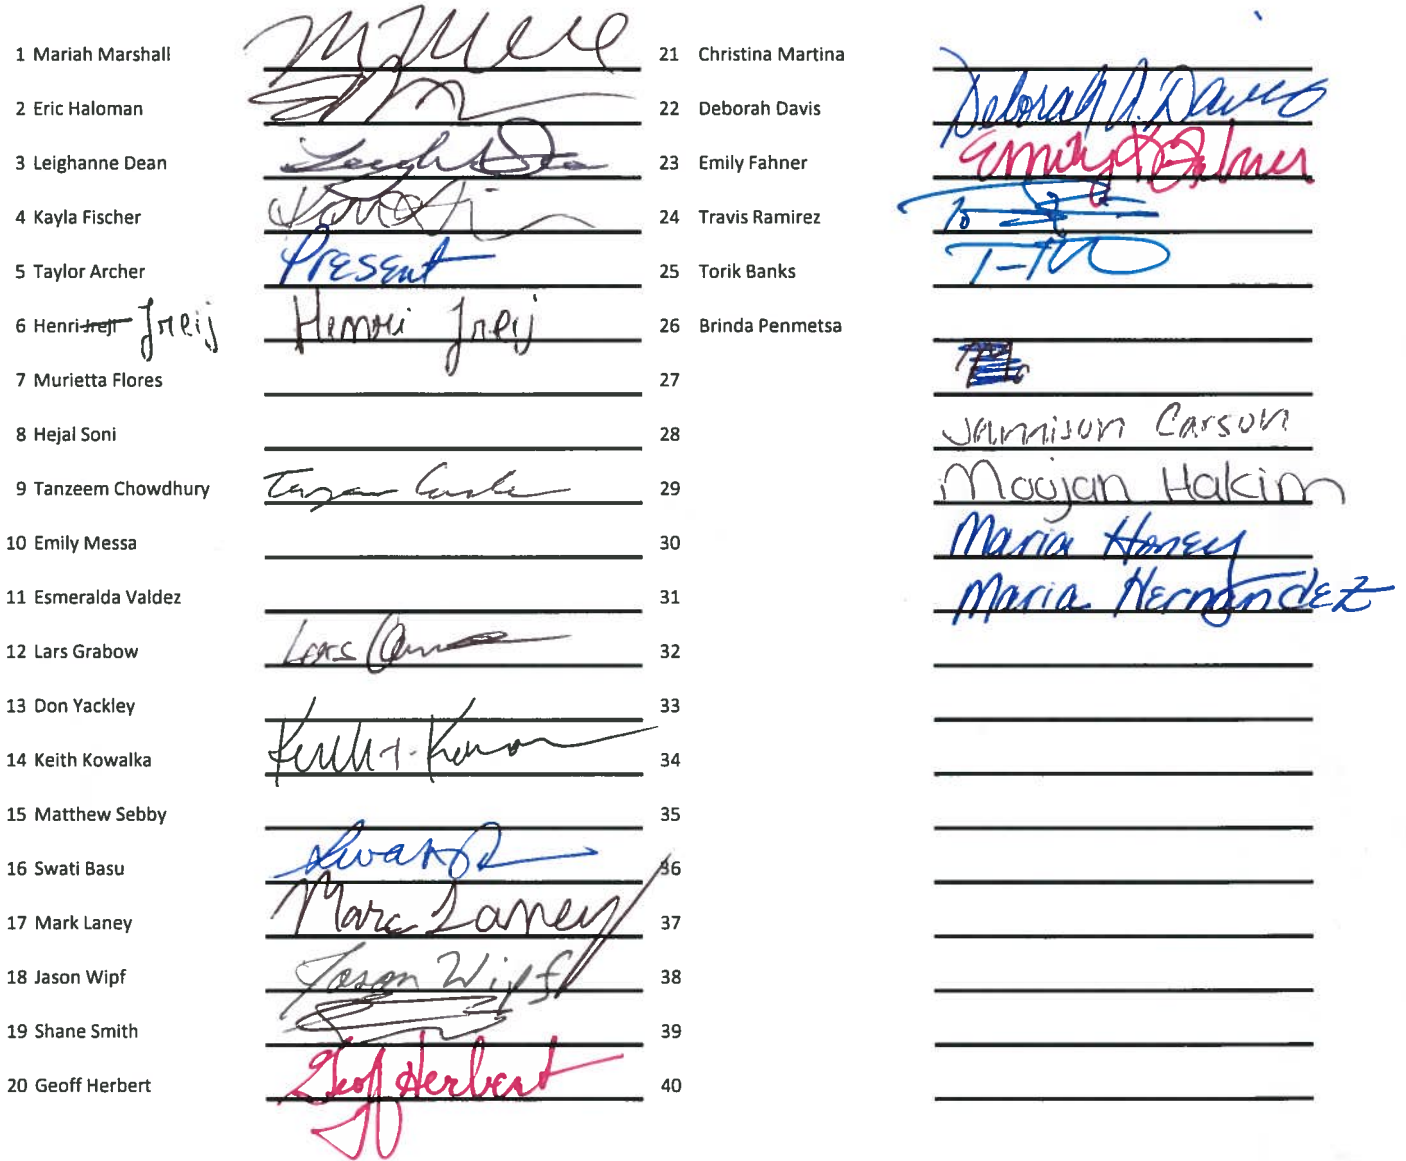 1 Mariah Marshall
2 Eric Haloman
3 Leighanne Dean Leigh Dea
4 Kayla Fischer
5 Taylor Archer Present
6 Henri Jreji Jreij Henri Jreij
7 Murietta Flores
8 Hejal Soni
9 Tanzeem Chowdhury
10 Emily Messa
11 Esmeralda Valdez
12 Lars Grabow Lars
13 Don Yackley
14 Keith Kowalka
15 Matthew Sebby
16 Swati Basu
17 Mark Laney Marc Laney
18 Jason Wipf Jason Wipf
19 Shane Smith
20 Geoff Herbert Geoff Herbert
21 Christina Martina
22 Deborah Davis Deborah A. Davis
23 Emily Fahner Emily K Fahner
24 Travis Ramirez
25 Torik Banks
26 Brinda Penmetsa
27
28 Jamison Carson
29 Moojan Hakim
30 Maria Honey
31 Maria Hernandez
32
33
34
35
36
37
38
39
40